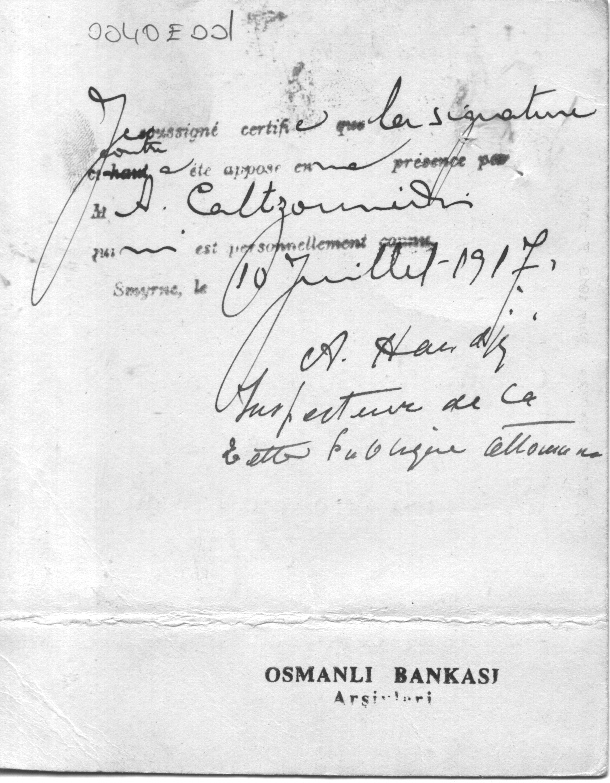 0040E001
Je soussigné certifie que la signature
contre
ci-haut a été apposé en ma présence par
M A. Caltzounidis
qui m'est personnellement connu
Smyrne, le 10 Juillet-1917.
A.
Inspecteur de la
Dette Publique Ottomane
OSMANLI BANKASI
Arşivleri